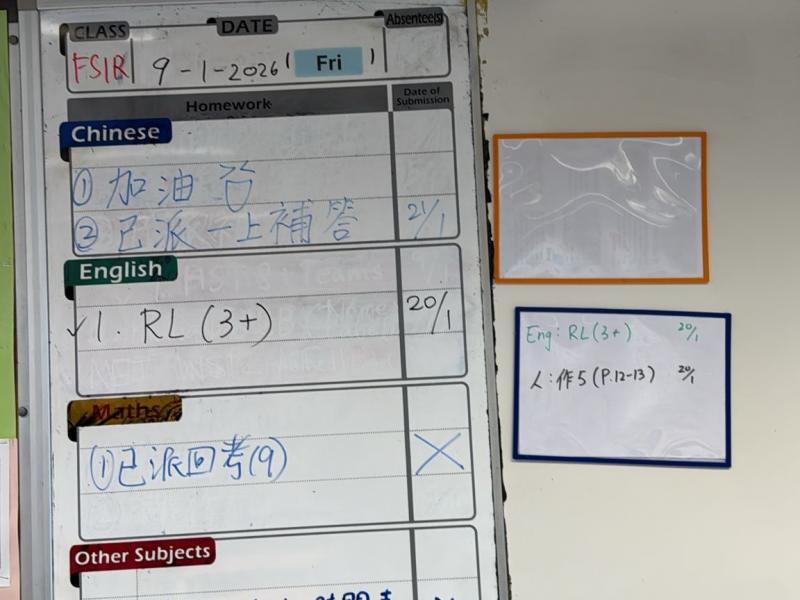 CLASS DATE Absentee(s)
FSIR 9-1-2026 ( Fri )
Homework Date of Submission
Chinese
① 加油站
② 已派一上補答 21/1
English
✓1. RL (3+) 20/1
Maths
① 已派回考(9) ×
Other Subjects
Eng: RL(3+) 20/1
人:作5 (P.12-13) 20/1